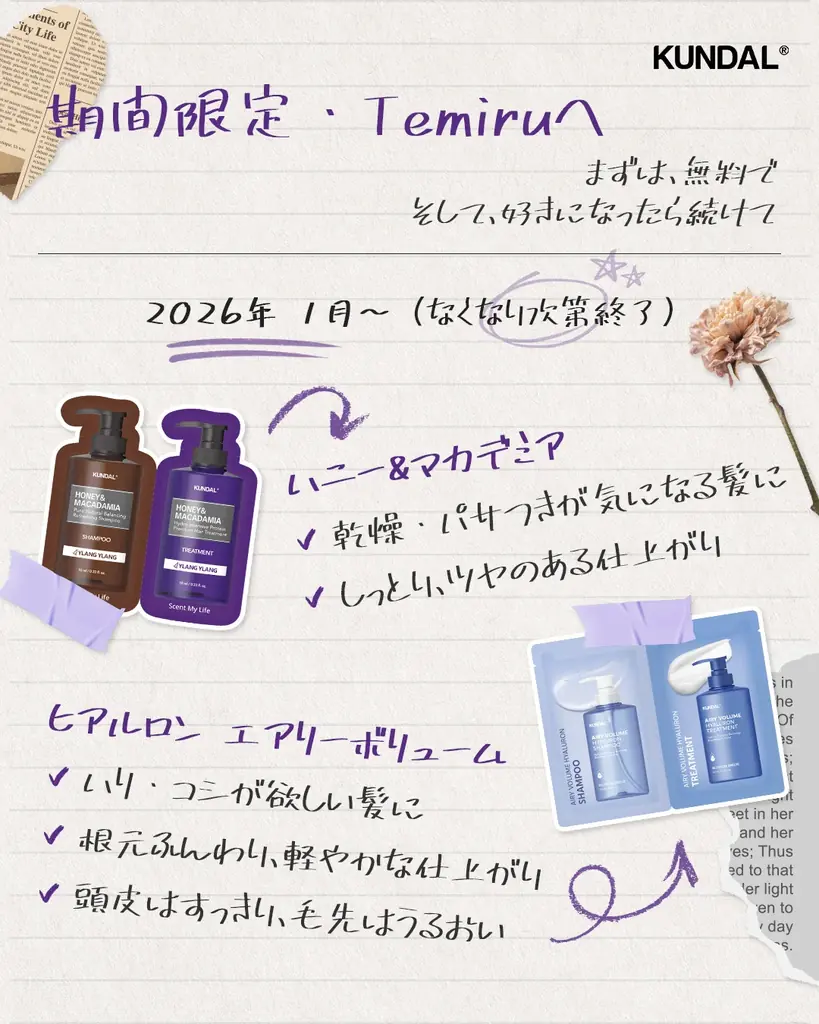 KUNDAL®
期間限定・Temiruへ
まずは、無料で
そして、好きになったら続けて
2026年 1月～（なくなり次第終了）
ハニー&マカデミア
✓ 乾燥・パサつきが気になる髪に
✓ しっとり、ツヤのある仕上がり
KUNDAL
HONEY&
MACADAMIA
SHAMPOO
YLANG YLANG
KUNDAL
HONEY&
MACADAMIA
TREATMENT
YLANG YLANG
Scent My Life
ヒアルロン エアリーボリューム
✓ ハリ・コシが欲しい髪に
✓ 根元ふんわり、軽やかな仕上がり
✓ 頭皮はすっきり、毛先はうるおい
AIRY VOLUME HYALURON
SHAMPOO
KUNDAL
AIRY VOLUME
HYALURON
SHAMPOO
AIRY VOLUME HYALURON
TREATMENT
KUNDAL
AIRY VOLUME
HYALURON
TREATMENT
City Life
s in
he
Of
es
eet in her
and her
es; Thus
ed to that
er light
en to
day
s.